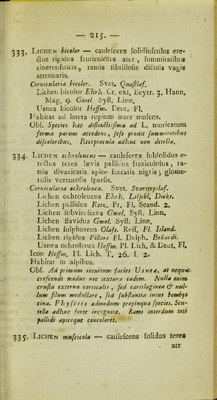 — 215. —
333. LICHEN bicolor — caulescens solidiusculus ere-
ctus rigidus fruticulosus ater, summitatibus
cinerascentibus, ramis fibrillosis distatis vagis
attenuatis.
Cornicularia bicolor. Svet.
Lichen bicolor Ehrh. Cr. exs, Beytr. 3. Hann,
Mag. 9. Gmel. Syst, Linn,
Usnea bicolor Hoffm. Deut, Fl,
Habitat ad latera rupium inter muscos.
Obs. Species haec distinctissima ad L. muricatum
forma parum accedens, sese prodit summitatibus
discoloribus. Receptacula adhuc non detecta.
334. LICHEN ochroleucus — caulescens subsolidus e-
rectus teres lævis pallidus fruticulosus, ra-
mis divaricatis apice furcatis nigris; glome-
rulis verrucosis sparsis.
Cornicularia ochroleuca. Svet.
Lichen ochroleucus Ehrh, Leljebl, Dicks.
Lichen pallidus Retz, Pr, Fl, Scand. 2.
Lichen subvirescens Gmel, Syst. Linn,
Lichen flavidus Gmel, Syst. Linn,
Lichen sulphureus Olafs. Reis, Fl. Island.
Lichen rigidus Villars Fl. Delph, Bellardi.
Usnea ochroleuca Hoffm. Pl. Lich, & Deut, Fl,
Icon Hoffm, Pl. Lich. T. 26. f. 2.
Habitat in alpibus.
Obs. Ad primum intuitum facies Usneæ, at neque
crescendi modus nec textura eadem. Nulla enim
crusta externa corticalis, sed cartilaginea & nul-
lum filum medullare, sed substantia intus bombyx
cina. Physciis admodum propinqua species. Scu-
tella adhuc forte incognita. Rami interdum toti
pallidi apicoque concolores.
335. LICHEN muscicola — caulescens solidus teres
atr